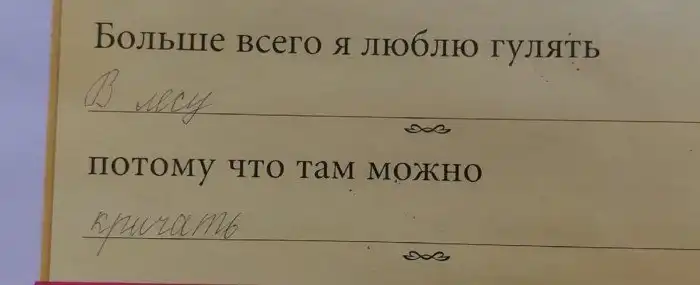 Больше всего я люблю гулять
В лесу
потому что там можно
кричать